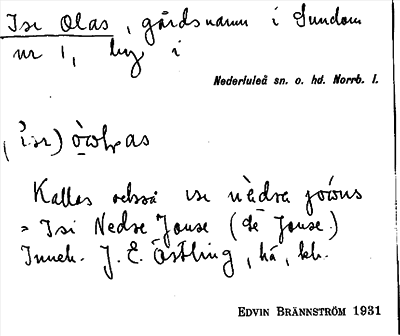 Isi Olas, gårdsnamn i Sundom
nr 1, by i
Nederluleå sn. o. hd. Norrb. l.
Kallas också
= Isi Nedre Jouse (de Jouse.)
Inneh. J. E. Östling,
EDVIN BRÄNNSTRÖM 1931